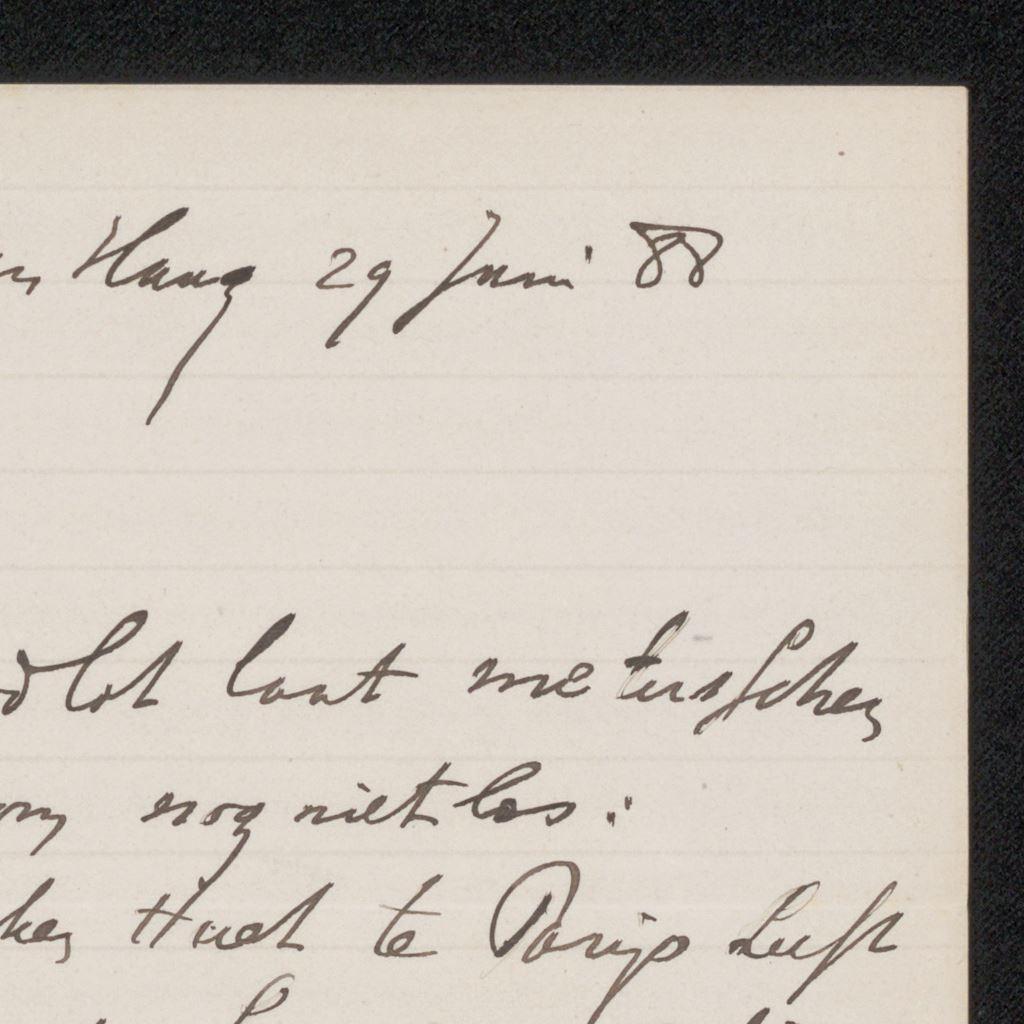 Haag 29 Juni 88
lot laat me tusschen
nog niet los:
ken Huet te Parijs heeft